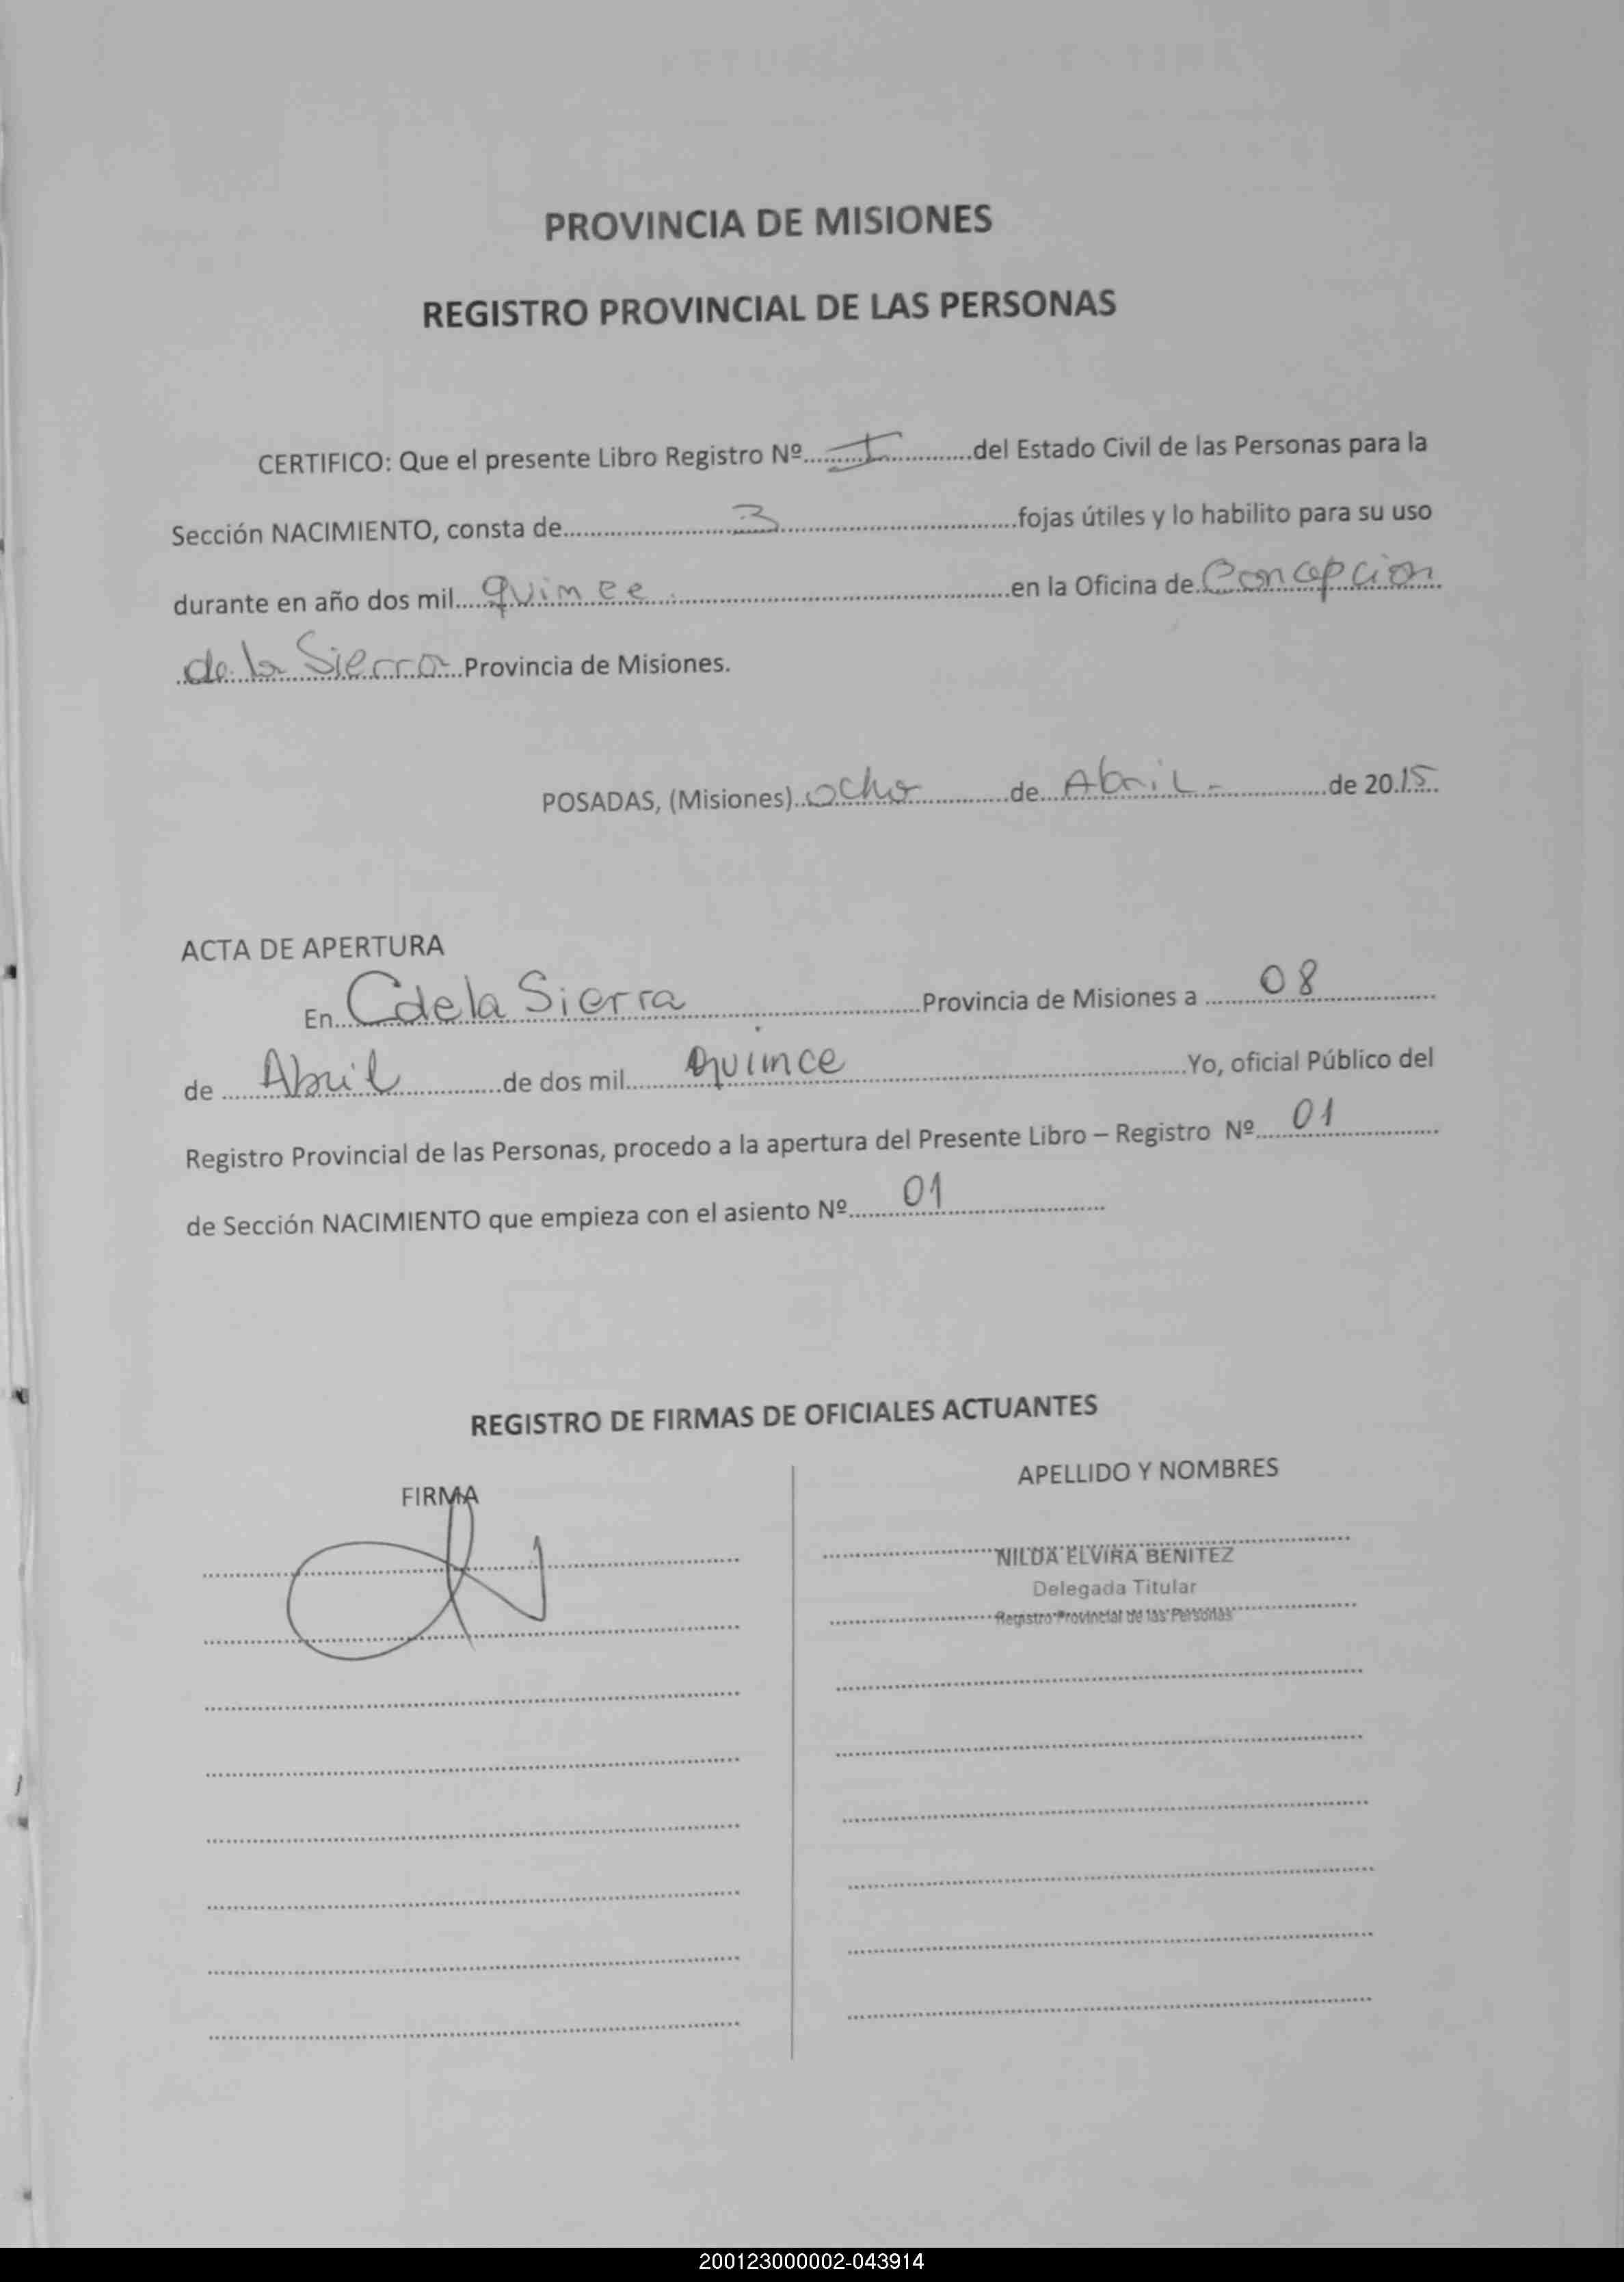 PROVINCIA DE MISIONES
REGISTRO PROVINCIAL DE LAS PERSONAS
CERTIFICO: Que el presente Libro Registro Nº I del Estado Civil de las Personas para la
Sección NACIMIENTO, consta de 3 fojas útiles y lo habilito para su uso
durante en año dos mil quince en la Oficina de Concepcion
de la Sierra Provincia de Misiones.
POSADAS, (Misiones) ocho de Abril - de 2015
ACTA DE APERTURA
En C de la Sierra Provincia de Misiones a 08
de Abril de dos mil quince Yo, oficial Público del
Registro Provincial de las Personas, procedo a la apertura del Presente Libro – Registro Nº 01
de Sección NACIMIENTO que empieza con el asiento Nº 01
REGISTRO DE FIRMAS DE OFICIALES ACTUANTES
FIRMA
APELLIDO Y NOMBRES
NILDA ELVIRA BENITEZ
Delegada Titular
Registro Provincial de las Personas
200123000002-043914